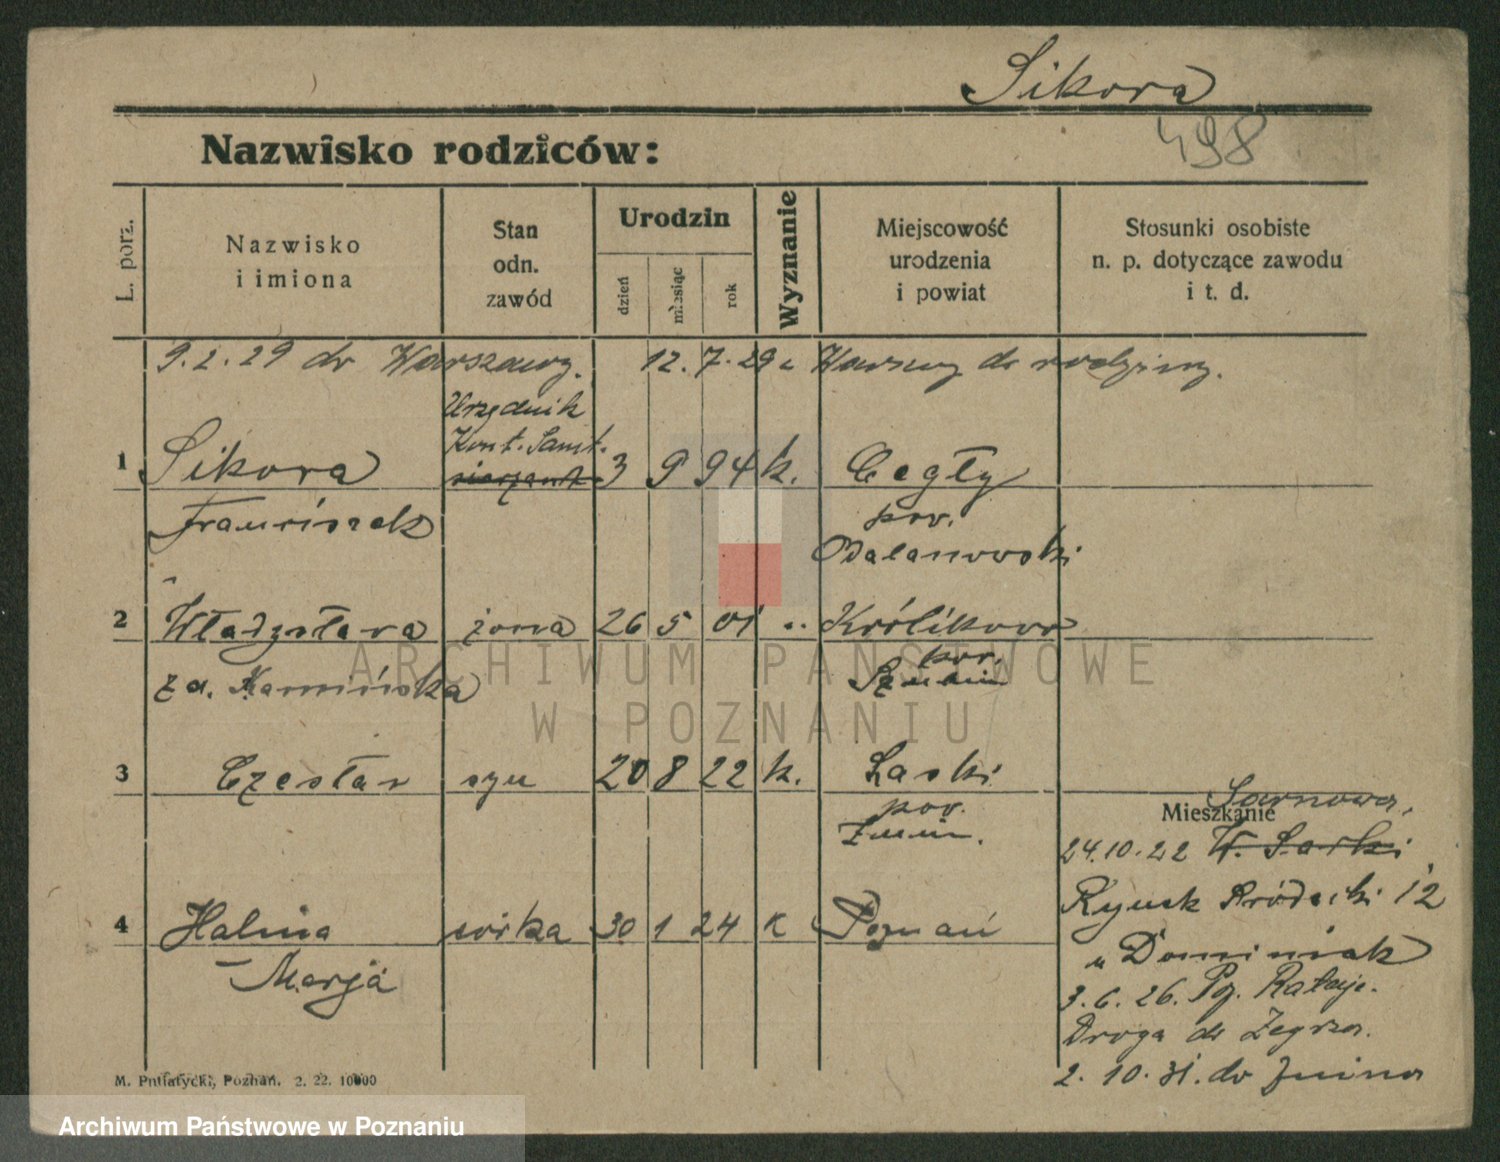 Sikora
498
Nazwisko rodziców:
L. porz.
Nazwisko
i imiona
Stan
odn.
zawód
Urodzin
dzień
miesiąc
rok
Wyznanie
Miejscowość
urodzenia
i powiat
Stosunki osobiste
n. p. dotyczące zawodu
i t. d.
9.2.29 do Warszawy. 12.7.29 z Warszwy do rodziny.
Urzędnik
Kont. Samt.
1 Sikora sierżant 3 9 94 k. Cegły
Franciszek pow.
Odalanowski
2 Władysława żona 26 5 01 " Królikowo
pow.
zd. Kamińska Szubin
3 Czesław syn 20 8 22 k. Laski
pow.
Żnin.
Mieszkanie
Sarnowa,
24.10.22 W. Garb.
4 Halina córka 30 1 24 k Poznań
Marja
Rynek Śródecki 12
u Dominiak
3.6.26. Pozn. Rataje.
Droga do Zegrza.
2.10.31. do Żnina
M. Putiatycki, Poznań. 2. 22. 10000
ARCHIWUM PAŃSTWOWE
W POZNANIU
Archiwum Państwowe w Poznaniu